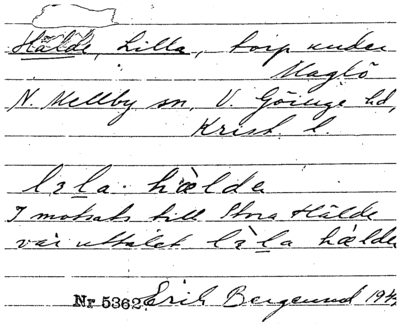 Hälde, Lilla, torp under
Maglö
N. Mellby sn, V. Göinge hd,
Krist. l.
lìla hæ̀lde
I motsats till Stora Hälde
var uttalet lìla hæ̀lde
Nr 5362. Erik Bergerund 194